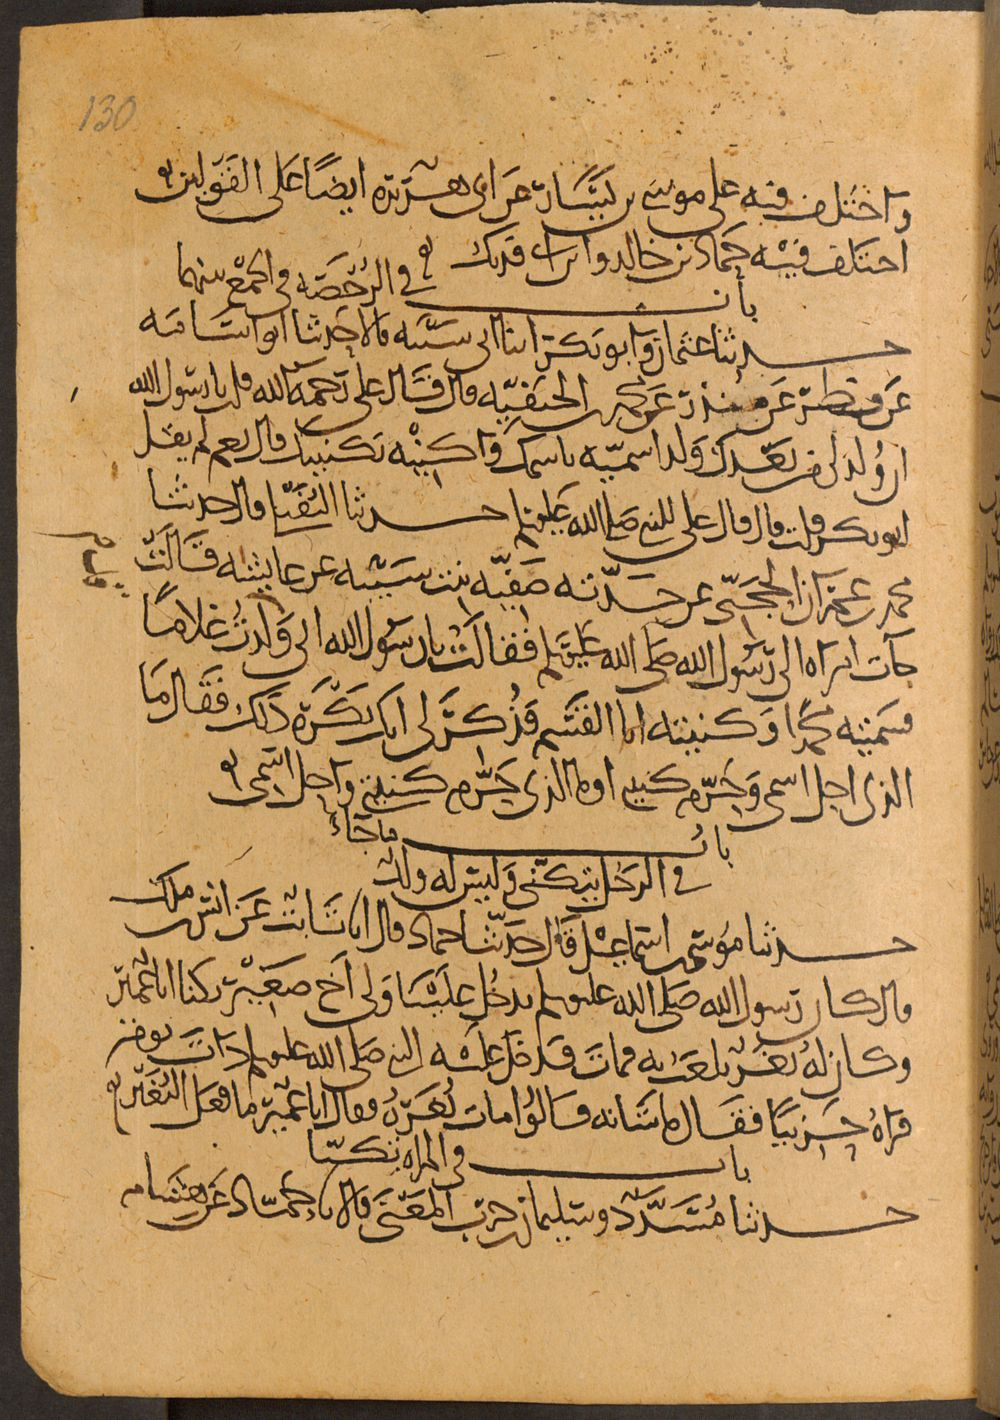 130
واختلف فيه على موسى بن يسار عن ابى هريرة ايضا على القولين
اختلف فيه حماد بن خالد وابن ابى فديك
باب في الرخصة في الجمع بينهما
حدثنا عثمان وابو بكر ابنا ابى شيبة قالا حدثنا ابو اسامه
عن فطر عن منذر عن محمد بن الحنفيه قال قال على رحمه الله قلت يا رسول الله
ان ولد لى من بعدك ولد اسميه باسمك واكنيه بكنيتك قال نعم لم يقل
ابو بكر قلت قال قال على للنبى صلى الله عليه وسلم حدثنا النفيلى قال حدثنا
محمد بن عمران الحجبى عن جدته صفيه بنت شيبه عن عايشه قالت
جات امراه الى رسول الله صلى الله عليه وسلم فقالت يا رسول الله انى ولدت غلاما
فسميته محمدا وكنيته ابا القسم فذكر لى انك تكره ذلك فقال ما
الذى احل اسمى وحرم كنيتى او ما الذى حرم كنيتى واحل اسمى
باب ما جاء
في الرجل يتكنى وليس له ولد
حدثنا موسى بن اسماعيل قال حدثنا حماد قال انا ثابت عن انس بن ملك
قال كان رسول الله صلى الله عليه وسلم يدخل علينا ولى اخ صغير يكنا ابا عمير
وكان له نغر يلعب به فمات فدخل عليه النبى صلى الله عليه وسلم ذات يوم
فراه حزينا فقال ما شانه قالوا مات نغره فقال ابا عمير ما فعل النغير
باب في المراه تكنا
حدثنا مسدد وسليمان بن حرب المعنى قالا نا حماد عن هشام